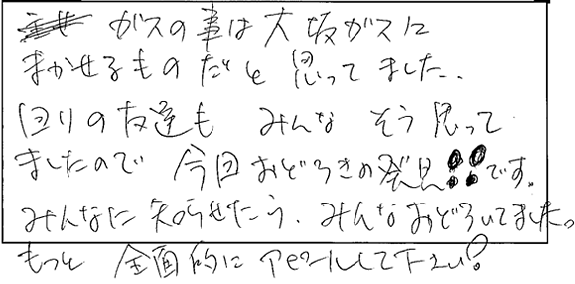 ガスの事は大坂ガスに
まかせるものだと思ってました.
回りの友達も みんな そう思って
ましたので 今回おどろきの発見!!です。
みんなに知らせたら、みんなおどろいてました。
もっと 全面的にアピールして下さい?